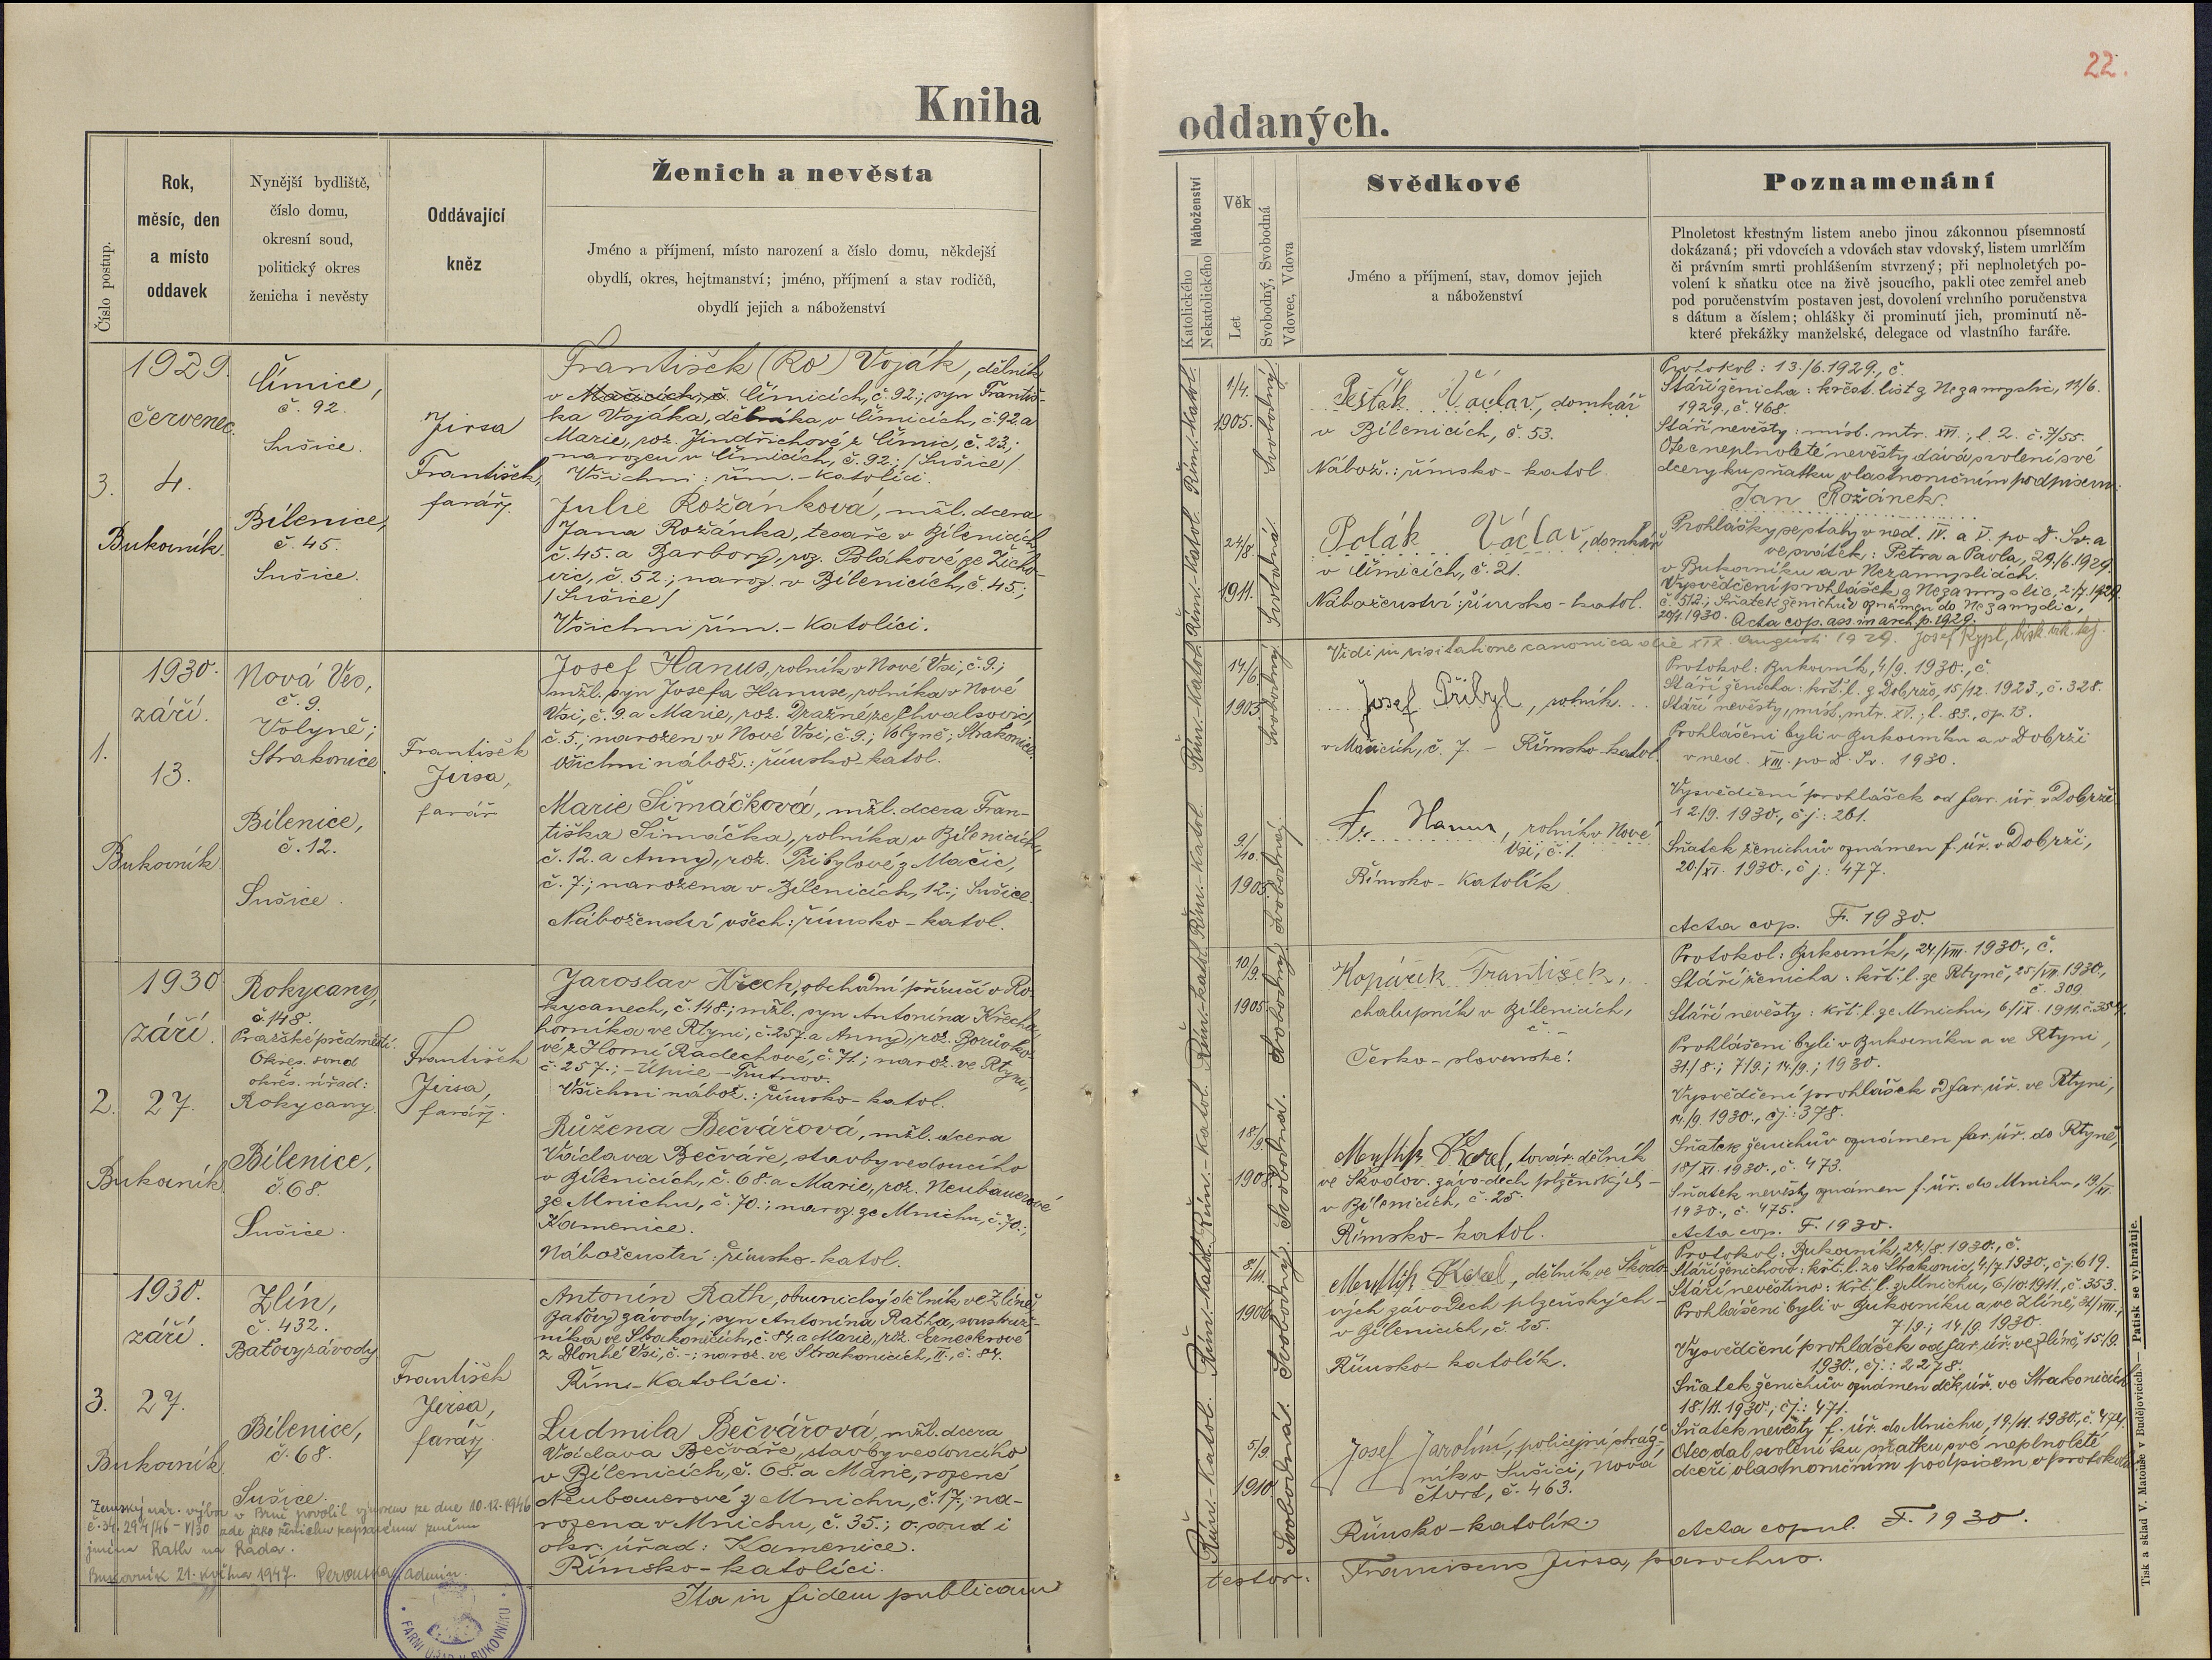 22.
Kniha
oddaných.
Číslo postup.
Rok,
měsíc, den
a místo
oddavek
Nynější bydliště,
číslo domu,
okresní soud,
politický okres
ženicha i nevěsty
Oddávající
kněz
Ženich a nevěsta
Jméno a příjmení, místo narození a číslo domu, někdejší
obydlí, okres, hejtmanství; jméno, příjmení a stav rodičů,
obydlí jejich a náboženství
Náboženství
Katolického
Nekatolického
Věk
Let
Svobodný, Svobodná
Vdovec, Vdova
Svědkové
Jméno a příjmení, stav, domov jejich
a náboženství
Poznamenání
Plnoletost křestným listem anebo jinou zákonnou písemností
dokázaná; při vdovcích a vdovách stav vdovský, listem umrlčím
či právním smrti prohlášením stvrzený; při neplnoletých po-
volení k sňatku otce na živě jsoucího, pakli otec zemřel aneb
pod poručenstvím postaven jest, dovolení vrchního poručenstva
s dátum a číslem; ohlášky či prominutí jich, prominutí ně-
které překážky manželské, delegace od vlastního faráře.
3.
1929.
červenec.
4.
Bukovník.
Čímice,
č. 92.
Sušice.
Bílenice,
č. 45.
Sušice.
Jirsa
František,
farář.
František (Ro) Voják, dělník
v Mačicích, č. Čímicích, č. 92.; syn Františ-
ka Vojáka, dělníka v Čímicích, č. 92. a
Marie, roz. Jindřichové z Čímic, č. 23.;
narozen v Čímicích, č. 92.; /Sušice/
Všichni: řím.-katolíci.
Julie Rožánková, mžl. dcera
Jana Rožánka, tesaře v Bílenicích
č. 45. a Barbory, roz. Polákové ze Žicho-
vic, č. 52.; naroz. v Bílenicích, č. 45.;
/Sušice/
Všichni řím.-katolíci.
Řím.-katol.
1/4.
1905.
Svobodný
Pešták Václav, domkář
v Bílenicích, č. 53.
Nábož.: římsko-katol.
Řím.-katol.
24/8.
1911.
Svobodná
Polák Václav, domkář
v Čímicích, č. 21.
Náboženství: římsko-katol.
Protokol: 13./6. 1929., č.
Stáří ženicha: křest. list z Nezamyslic, 12/6.
1929., č. 468.
Stáří nevěsty: míst. mtr. XVI.; l. 2. č. 7/55.
Otec neplnoleté nevěsty dává svolení své
dcery ku sňatku vlastnoručním podpisem:
Jan Rožánek.
Prohlášky se staly v ned. IV. a V. po D. Sv. a
ve svátek: Petra a Pavla, 29./6. 1929.
v Bukovníku a v Nezamyslicích.
Vysvědčení prohlášek z Nezamyslic, 2/7. 1929.
č. 512.; Sňatek ženichův oznámen do Nezamyslic,
20/1. 1930. Acta cop. ass. in arch. p. 1929.
Vidi in visitatione canonica die XIX. Augusti 1929. Josef Kypl,
1.
1930.
září.
13.
Bukovník
Nová Ves,
č. 9.
Volyně;
Strakonice
Bílenice,
č. 12.
Sušice.
František
Jirsa,
farář
Josef Hanus, rolník v Nové Vsi, č. 9.;
mžl. syn Josefa Hanuse, rolníka v Nové
Vsi, č. 9. a Marie, roz. Dražné ze Chvalšovic,
č. 5.; narozen v Nové Vsi, č. 9.; Volyně; Strakonice.
Všichni nábož.: římsko-katol.
Marie Šimáčková, mžl. dcera Fran-
tiška Šimáčka, rolníka v Bílenicích
č. 12. a Anny, roz. Přibylové z Mačic,
č. 7.; narozena v Bílenicích, 12.; Sušice.
Náboženství všech: římsko-katol.
Řím.-katol.
14/6.
1903.
Svobodný
Josef Přibyl, rolník
v Mačicích, č. 7. - Římsko-katol.
Řím.-katol.
9./10.
1905.
Svobodná
Fr. Hanus, rolník v Nové
Vsi, č. 1.
Římsko-katolík.
Protokol: Bukovník, 4/9. 1930., č
Stáří ženicha: křt. l. z Dobrše, 15/12. 1923., č. 328.
Stáří nevěsty, míst. mtr. XV.; l. 83., op. 13.
Prohlášeni byli v Bukovníku a v Dobrši
v ned. XIII. po D. Sv. 1930.
Vysvědčení prohlášek od far. úř. v Dobrši
12/9. 1930., čj.: 261.
Sňatek ženichův oznámen f. úř. v Dobrši,
20./XI. 1930., čj.: 477.
Acta cop. F. 1930.
2.
1930
září.
27.
Bukovník
Rokycany,
č. 148.
Pražské předměstí.
Okres. soud
okres. úřad:
Rokycany.
Bílenice,
č. 68.
Sušice.
František
Jirsa,
farář.
Jaroslav Křech, obchodní příručí v Ro-
kycanech, č. 148.; mžl. syn Antonína Křecha
horníka ve Rtyni, č. 257. a Anny, roz. Borůvko-
vé z Horní Radechové, č. 71.; naroz. ve Rtyni,
č. 257.; - Úpice - Trutnov.
Všichni nábož.: římsko-katol.
Růžena Bečvářová, mžl. dcera
Václava Bečváře, stavbyvedoucího
v Bílenicích, č. 68. a Marie, roz. Neubauerové
ze Mnichu, č. 70.; naroz. ze Mnichu, č. 70.;
Kamenice.
Náboženství: římsko-katol.
Řím.-katol.
10/9.
1905
Svobodný
Kopáček František,
chalupník v Bílenicích,
č. -
Česko-slovenské.
Řím.-katol.
18/9.
1908.
Svobodná.
Karel, továr. dělník
ve Škodov. závodech plzeňských -
v Bílenicích, č. 25.
Římsko-katol.
Protokol: Bukovník, 24/VIII. 1930., č.
Stáří ženicha: křt. l. ze Rtyně, 25/VII. 1930.,
č. 309
Stáří nevěsty: křt. l. ze Mnichu, 6/IX. 1911. č. 354.
Prohlášeni byli v Bukovníku a ve Rtyni,
31./8.; 7/9.; 14/9.; 1930.
Vysvědčení prohlášek od far. úř. ve Rtyni,
14/9. 1930., čj.: 378.
Sňatek ženichův oznámen far. úř. do Rtyně,
18/XI. 1930., č. 473.
Sňatek nevěsty oznámen f. úř. do Mnichu, 19/XI.
1930., č. 475.
Acta cop. F. 1930.
3.
1930.
září.
27.
Bukovník
Zlín,
č. 432.
Baťovy závody
Bílenice,
č. 68.
Sušice.
František
Jirsa,
farář.
Antonín Rath, obuvnický dělník ve Zlíně
Baťovy závody; syn Antonína Ratha, soustruž-
níka ve Strakonicích, č. 84. a Marie, roz.
z Dlouhé Vsi, č. -; naroz. ve Strakonicích, II., č. 84.
Řím.-katolíci.
Ludmila Bečvářová, mžl. dcera
Václava Bečváře, stavbyvedoucího
v Bílenicích, č. 68. a Marie, rozené
Neubauerové z Mnichu, č. 17.; na-
rozena v Mnichu, č. 35.; o. soud i
okr. úřad: Kamenice.
Římsko-katolíci.
Řím.-katol.
8/11.
1906
Svobodný.
Karel, dělník ve Škodo-
vých závodech plzeňských -
v Bílenicích, č. 25.
Římsko-katolík.
Řím.-katol.
5/9.
1910.
Svobodná
Josef Jarolím, policejní stráž-
ník v Sušici, Nová
čtvrť, č. 463.
Římsko-katolík.
Protokol: Bukovník, 24/8. 1930., č.
Stáří ženichovo: křt. l. ze Strakonic, 4/7. 1930., čj. 619.
Stáří nevěstino: křt. l. z Mnichu, 6/10. 1911., č. 353.
Prohlášeni byli v Bukovníku a ve Zlíně, 31/VIII.,
7/9.; 14/9. 1930.
Vysvědčení prohlášek od far. úř. ve Zlíně, 15./9.
1930., čj.: 2278.
Sňatek ženichův oznámen děk. úř. ve Strakonicích
18./11. 1930., čj.: 471.
Sňatek nevěsty f. úř. do Mnichu, 19./11. 1930., č. 474.
Otec dal svolení ku sňatku své neplnoleté
dceři vlastnoručním podpisem v protokolu
Acta copul. F. 1930.
Zemský nár. výbor v Brně povolil výnosem ze dne 10.12.1946
č. 34.294/46-V/30 zde jako ženichu zapsanému změnu
jména Rath na Rada.
Bukovník 21. května 1947. admin.
Ita in fidem publicam
testor. Franciscus Jirsa, parochus.
FARNÍ ÚŘAD V BUKOVNÍKU
Tisk a sklad V. Matouše v Budějovicích. — Patisk se vyhražuje.